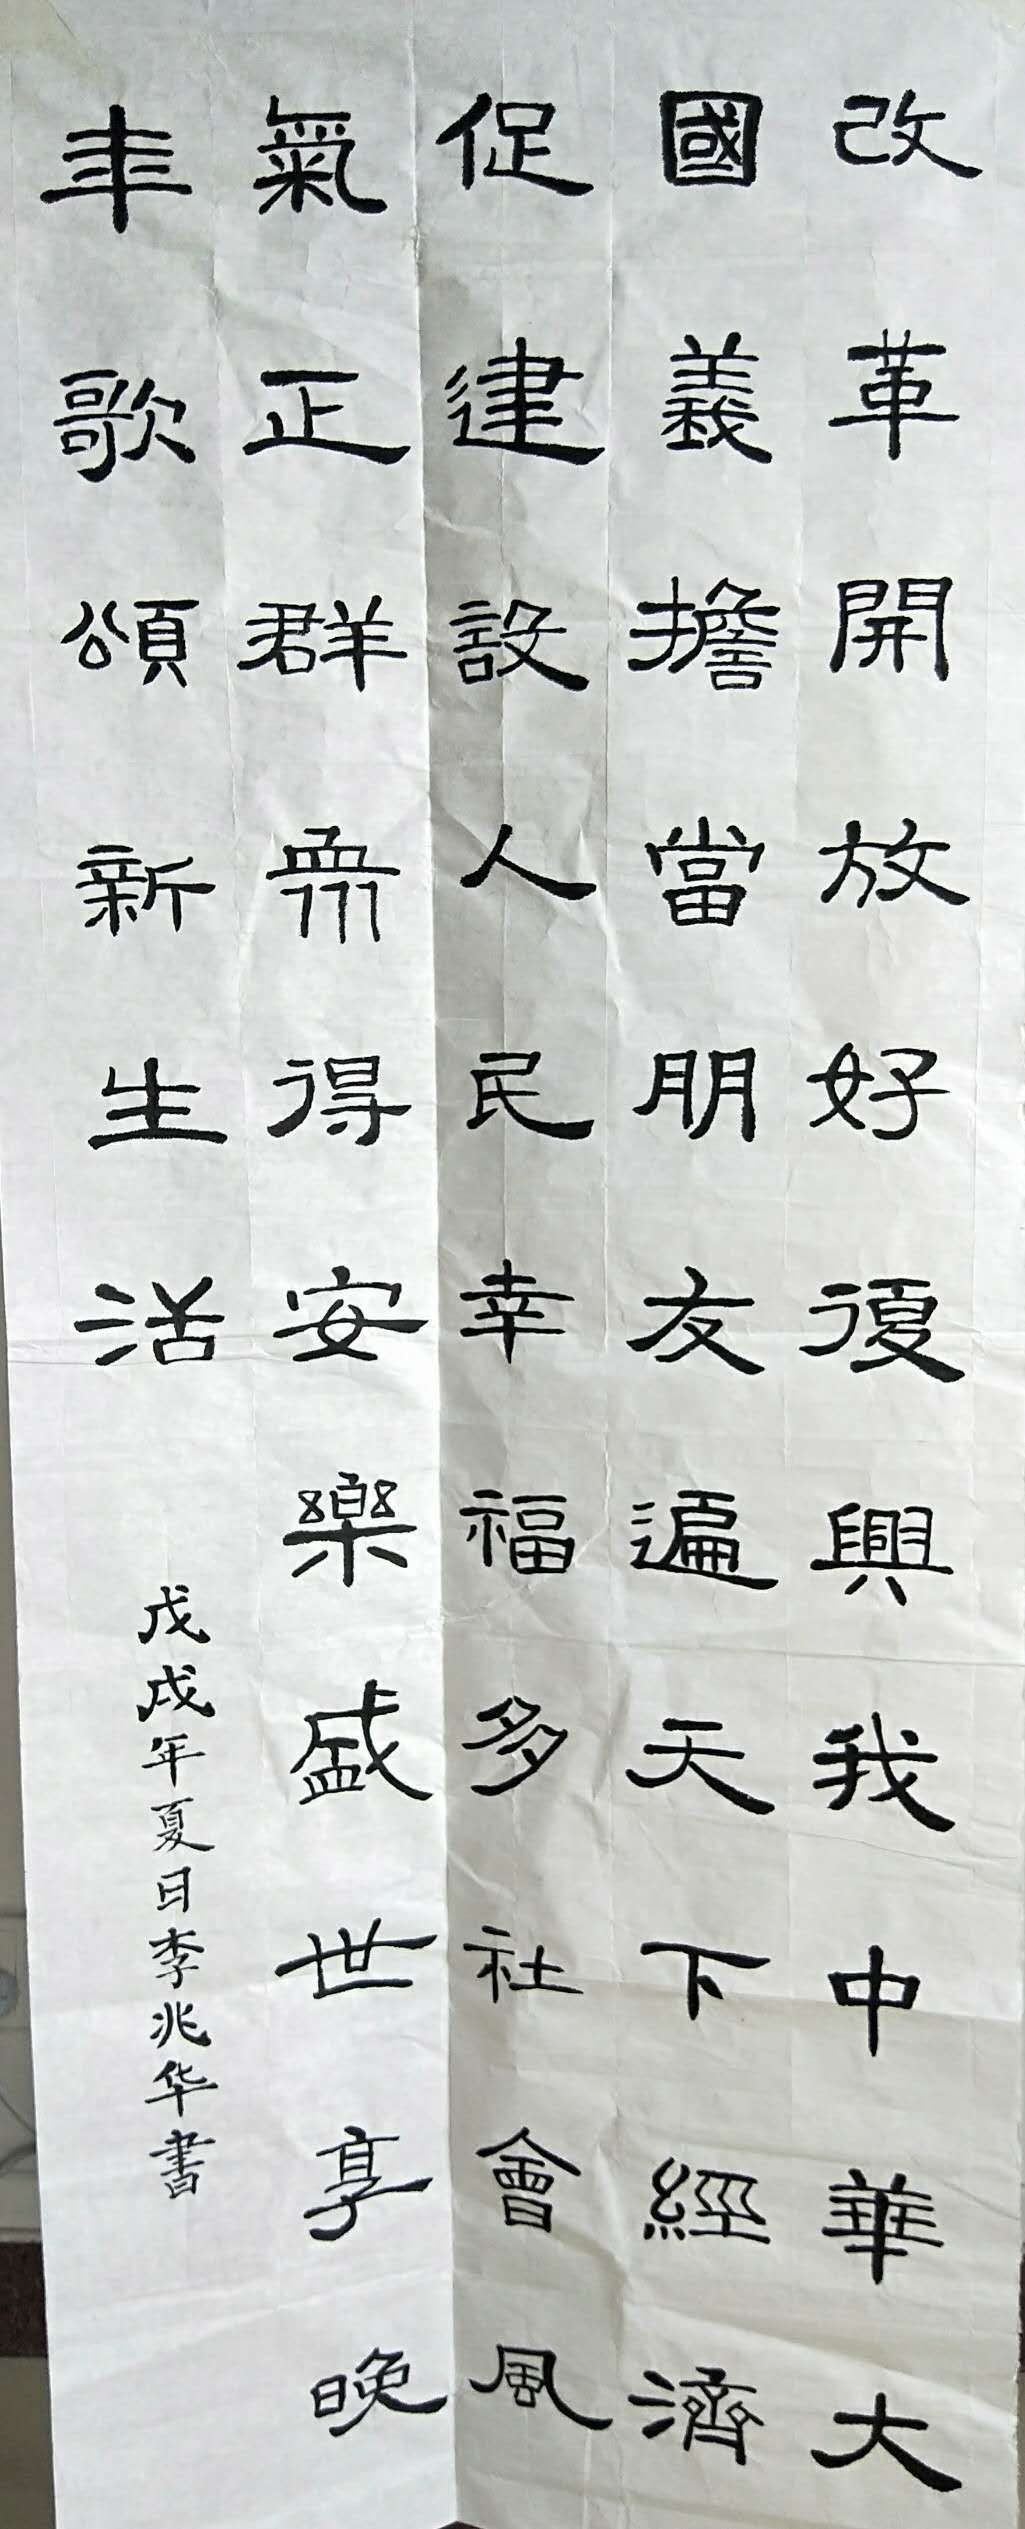 改革開放好復興我中華大
國義擔當朋友遍天下經濟
促建設人民幸福多社會風
氣正群眾得安樂盛世享晚
年歌頌新生活
戊戌年夏日李兆华書